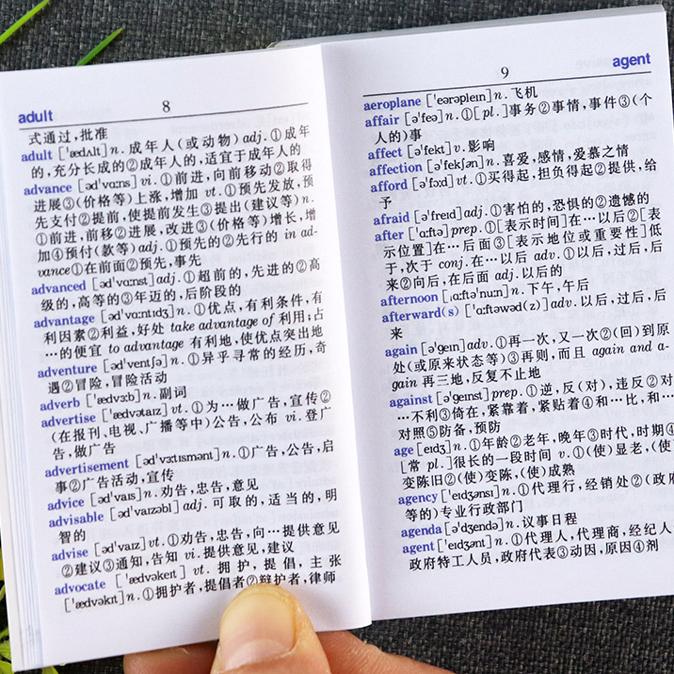 adult
8
式通过,批准
adult [ˈædʌlt] n. 成年人(或动物) adj. ①成年
的,充分长成的②成年人的,适宜于成年人的
advance [ədˈvɑːns] vi. ①前进,向前移动②取得
进展③(价格等)上涨,增加 vt. ①预先发放,预
先支付②提前,使提前发生③提出(建议等) n.
①前进,前移②进展,改进③(价格等)增长,增
加④预付(款等) adj. ①预先的②先行的 in ad-
vance①在前面②预先,事先
advanced [ədˈvɑːnst] adj. ①超前的,先进的②高
级的,高等的③年迈的,后阶段的
advantage [ədˈvɑːntɪdʒ] n. ①优点,有利条件,有
利因素②利益,好处 take advantage of 利用;占
…的便宜 to advantage 有利地,使优点突出地
adventure [ədˈventʃə] n. ①异乎寻常的经历,奇
遇②冒险,冒险活动
adverb [ˈædvɜːb] n. 副词
advertise [ˈædvətaɪz] vt. ①为…做广告,宣传②
(在报刊、电视、广播等中)公告,公布 vi. 登广
告,做广告
advertisement [ədˈvɜːtɪsmənt] n. ①广告,公告,启
事②广告活动,宣传
advice [ədˈvaɪs] n. 劝告,忠告,意见
advisable [ədˈvaɪzəbl] adj. 可取的,适当的,明
智的
advise [ədˈvaɪz] vt. ①劝告,忠告,向…提供意见
②建议③通知,告知 vi. 提供意见,建议
advocate [ˈædvəkeɪt] vt. 拥护,提倡,主张
[ˈædvəkɪt] n. ①拥护者,提倡者②辩护者,律师
9
agent
aeroplane [ˈeərəpleɪn] n. 飞机
affair [əˈfeə] n. ①[pl.]事务②事情,事件③(个
人的)事
affect [əˈfekt] v. 影响
affection [əˈfekʃən] n. 喜爱,感情,爱慕之情
afford [əˈfɔːd] vt. ①买得起,担负得起②提供,给
予
afraid [əˈfreɪd] adj. ①害怕的,恐惧的②遗憾的
after [ˈɑːftə] prep. ①[表示时间]在…以后②[表
示位置]在…后面③[表示地位或重要性]低
于,次于 conj. 在…以后 adv. ①以后,过后,后
来②向后,在后面 adj. 以后的
afternoon [ˌɑːftəˈnuːn] n. 下午,午后
afterward(s) [ˈɑːftəwəd(z)] adv. 以后,过后,后
来
again [əˈɡeɪn] adv. ①再一次,又一次②(回)到原
处(或原来状态等)③再则,而且 again and a-
gain 再三地,反复不止地
against [əˈɡeɪnst] prep. ①逆,反(对),违反②对
…不利③倚在,紧靠着,紧贴着④和…比,和…
对照⑤防备,预防
age [eɪdʒ] n. ①年龄②老年,晚年③时代,时期④
[常 pl.]很长的一段时间 v. ①(使)显老,(使)
变陈旧②(使)变陈,(使)成熟
agency [ˈeɪdʒənsɪ] n. ①代理行,经销处②(政府
等的)专业行政部门
agenda [əˈdʒendə] n. 议事日程
agent [ˈeɪdʒənt] n. ①代理人,代理商,经纪人
政府特工人员,政府代表③动因,原因④剂